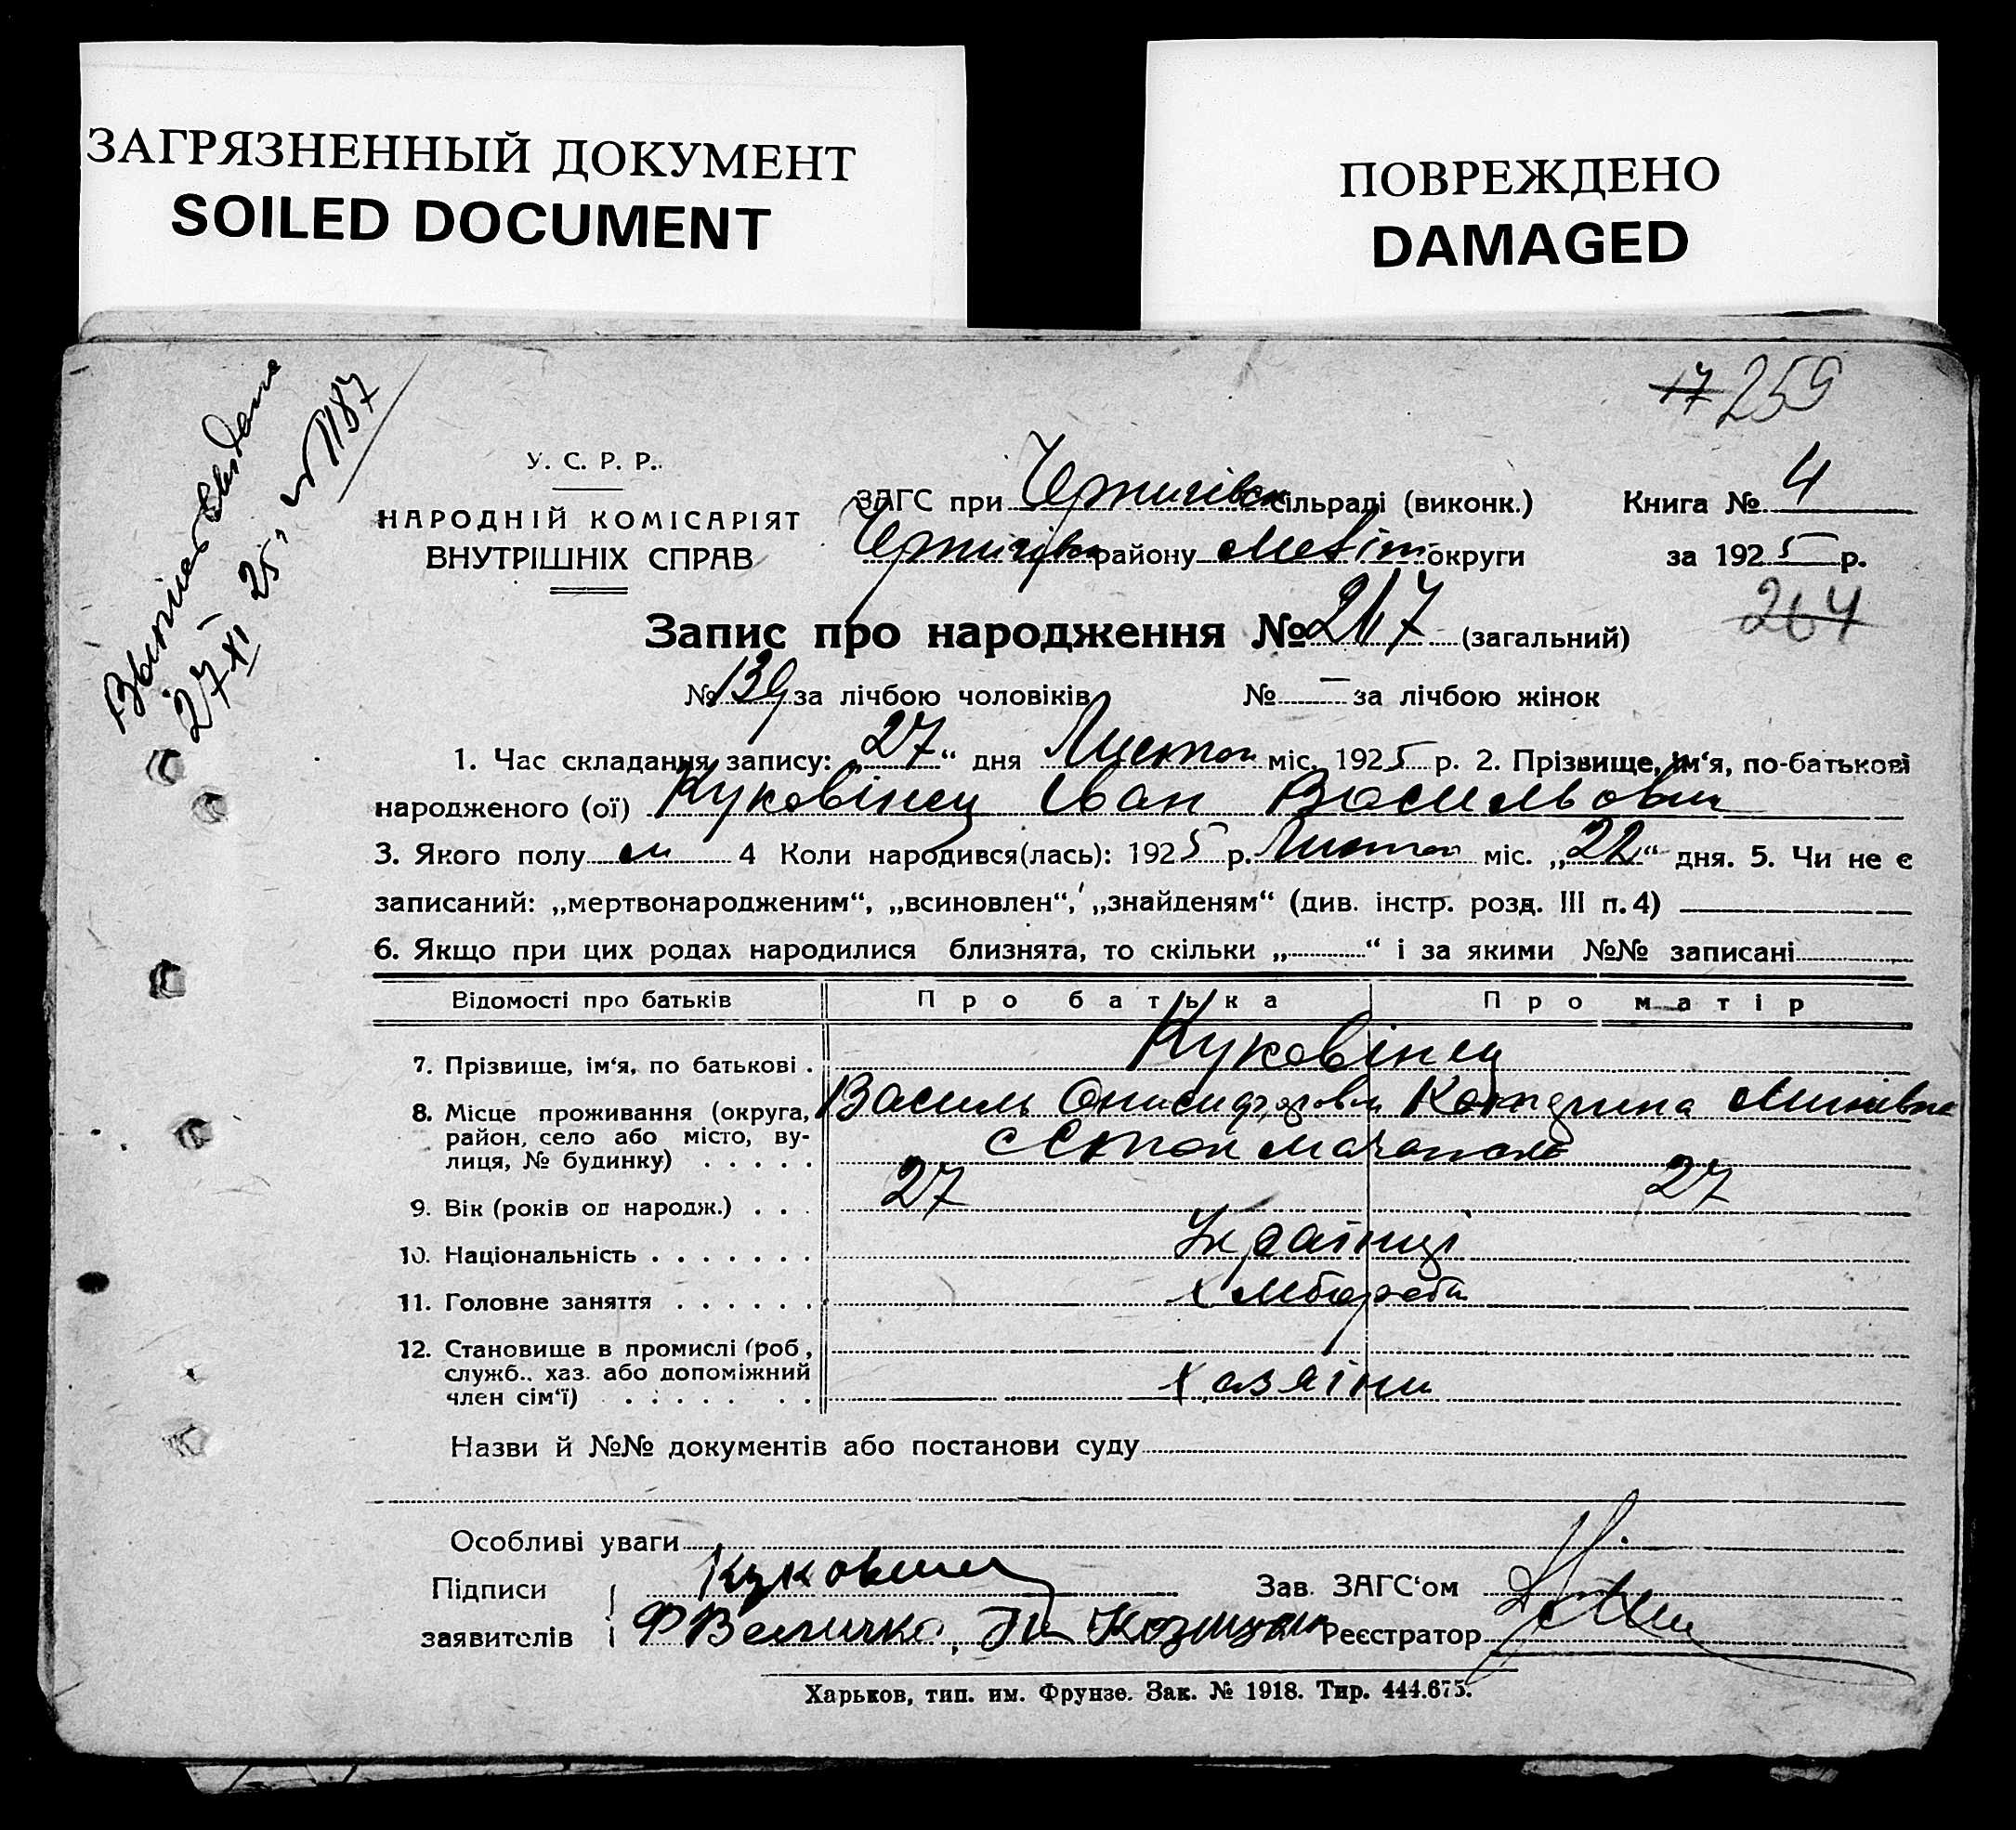 ЗАГРЯЗНЕННЫЙ ДОКУМЕНТ
SOILED DOCUMENT
ПОВРЕЖДЕНО
DAMAGED
17 259
27 XI 25 №1187
У. С. Р. Р.
НАРОДНІЙ КОМІСАРІЯТ
ВНУТРІШНІХ СПРАВ
ЗАГС при Чернигівск сільраді (виконк.)
района Мелітоп округи
Книга № 4
за 1925 р.
264
Запис про народження № 217 (загальний)
№ 139 за лічбою чоловіків № — за лічбою жінок
1. Час складання запису: „27“ дня Листоп міс. 1925 р. 2. Прізвище, ім‘я, по-батькові
народженого (ої) Куковінец Іван Васильович
3. Якого полу м 4 Коли народився(лась): 1925 р. Листоп міс. „22“ дня. 5. Чи не є
записаний: „мертвонародженим“, „всиновлен“, „знайденям“ (див. інстр. розд. III п. 4)
6. Якщо при цих родах народилися близнята, то скільки „ “ і за якими №№ записані
Відомості про батьків Про батька Про матір
7. Прізвище, ім‘я, по батькові . Куковінец
8. Місце проживання (округа, район, село або місто, вулиця, № будинку) Василь Катерина
9. Вік (років од народж.) . . . 27 27
10. Національність . . . . . . . Українці
11. Головне заняття . . . . . . хлібороби
12. Становище в промислі (роб, служб., хаз. або допоміжний член сім‘ї) хазяіни
Назви й №№ документів або постанови суду
Особливі уваги
Підписи Куковинец Зав. ЗАГС‘ом
заявителів Ф Величко, Реєстратор
Харьков, тип. им. Фрунзе. Зак. № 1918. Тир. 444.675.